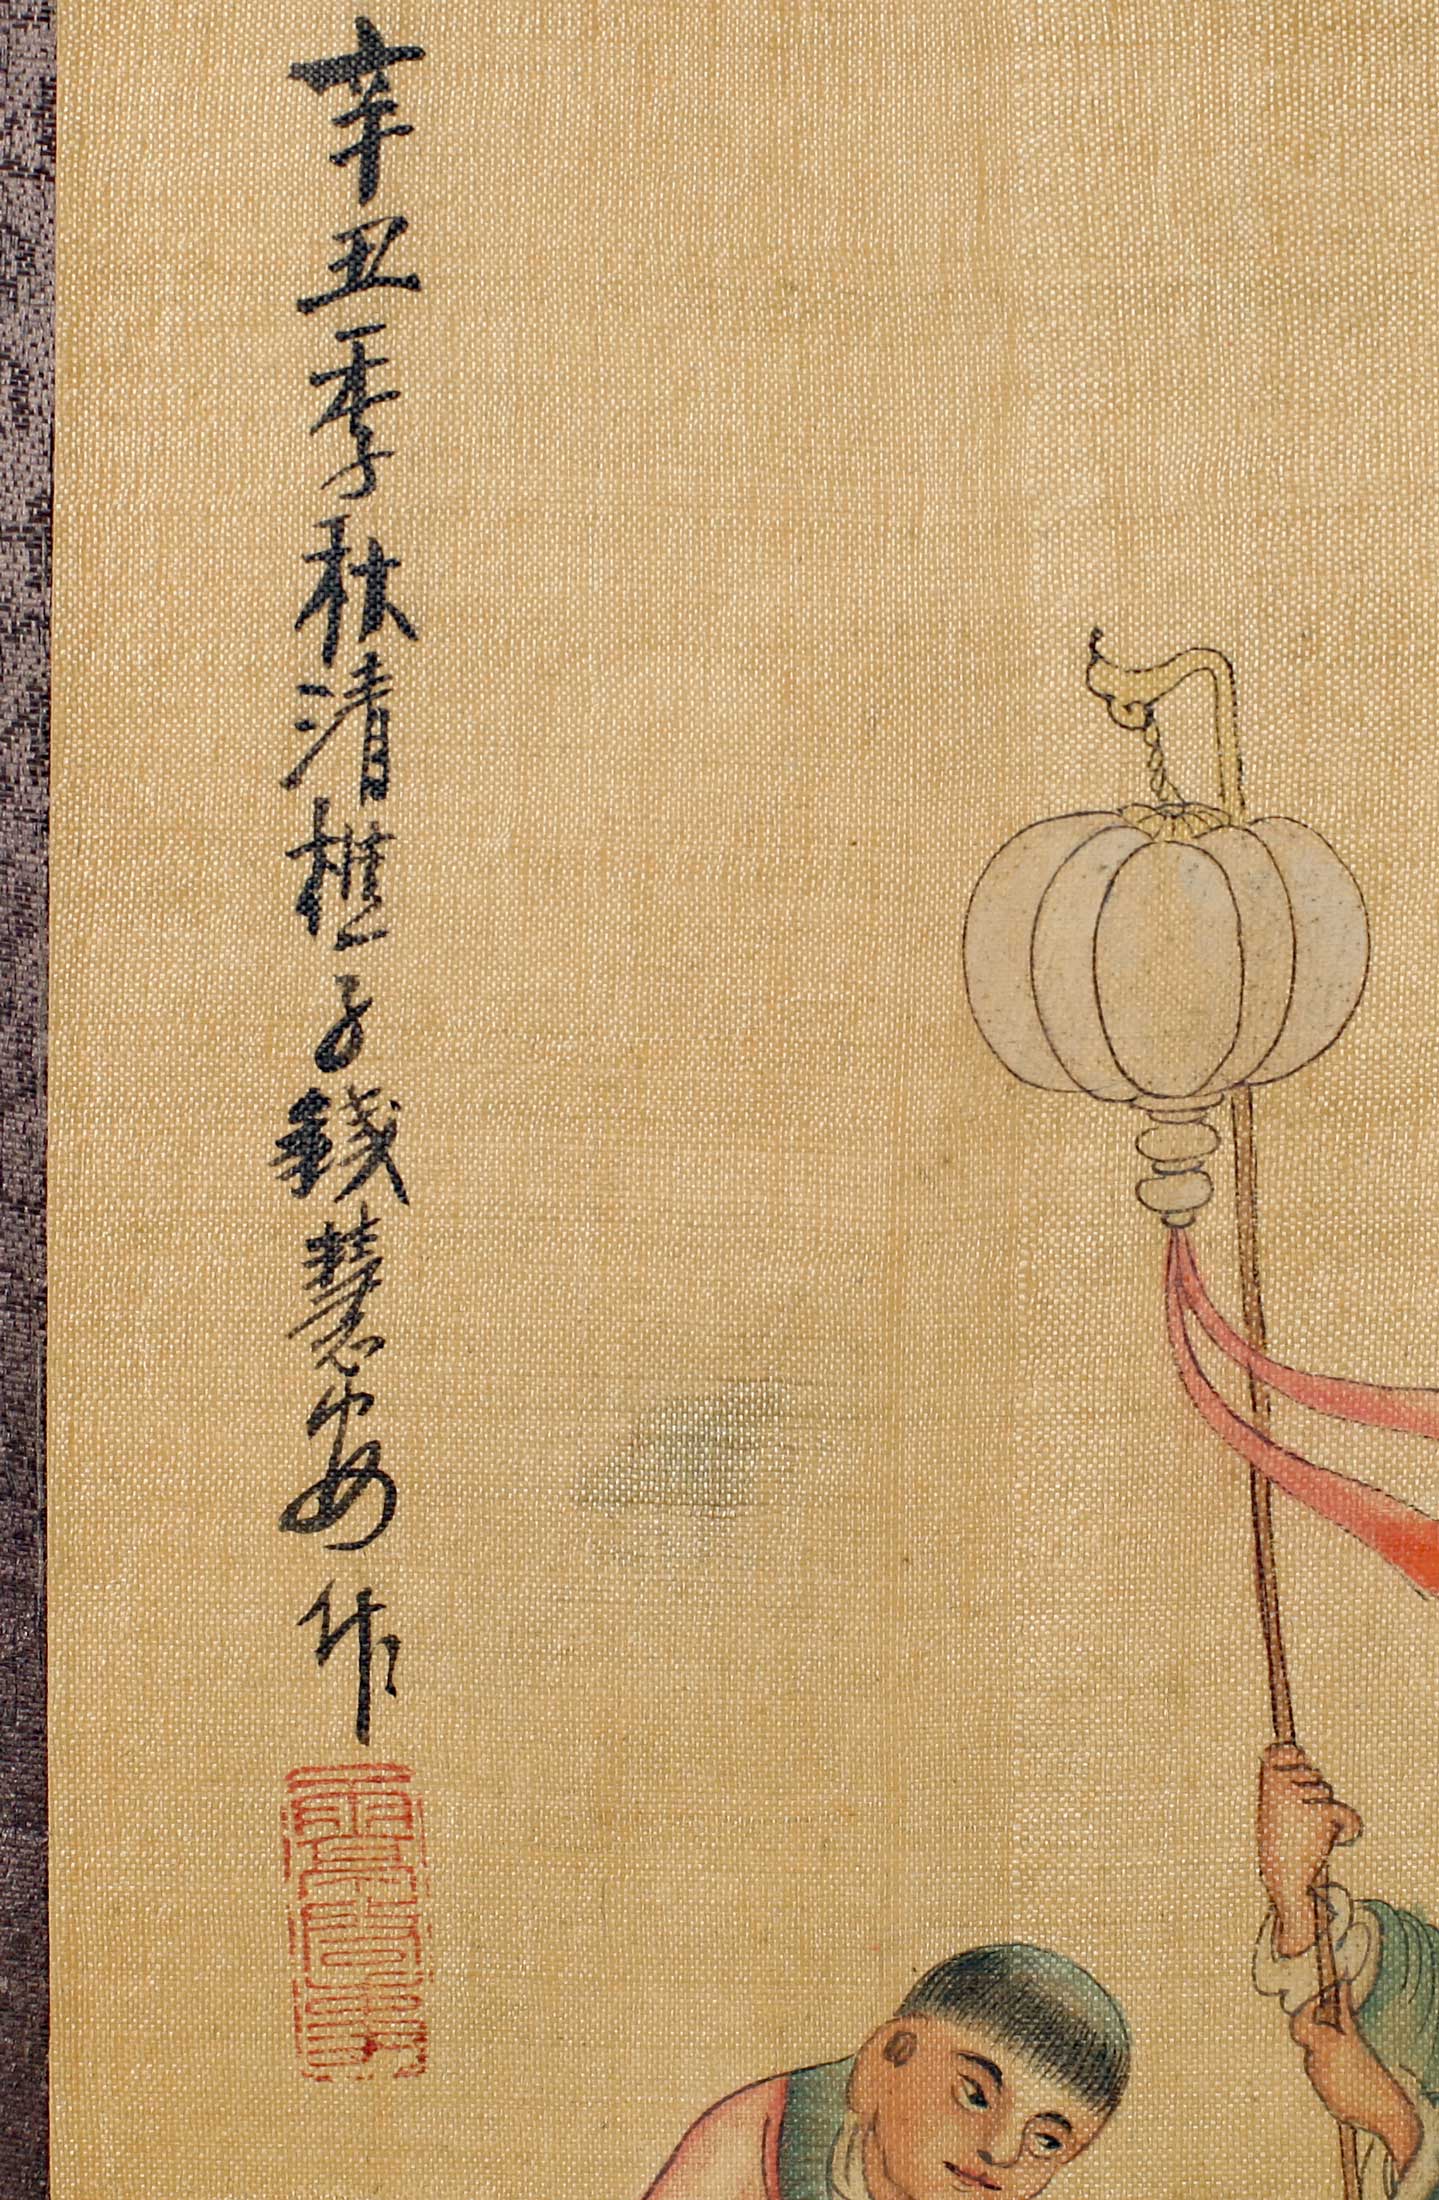 辛丑季秋清樵子錢慧安作